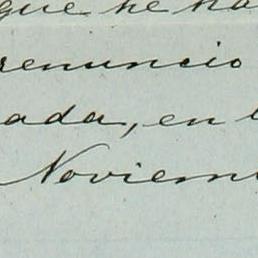 que he ha
renuncio
ada, en l
Noviem